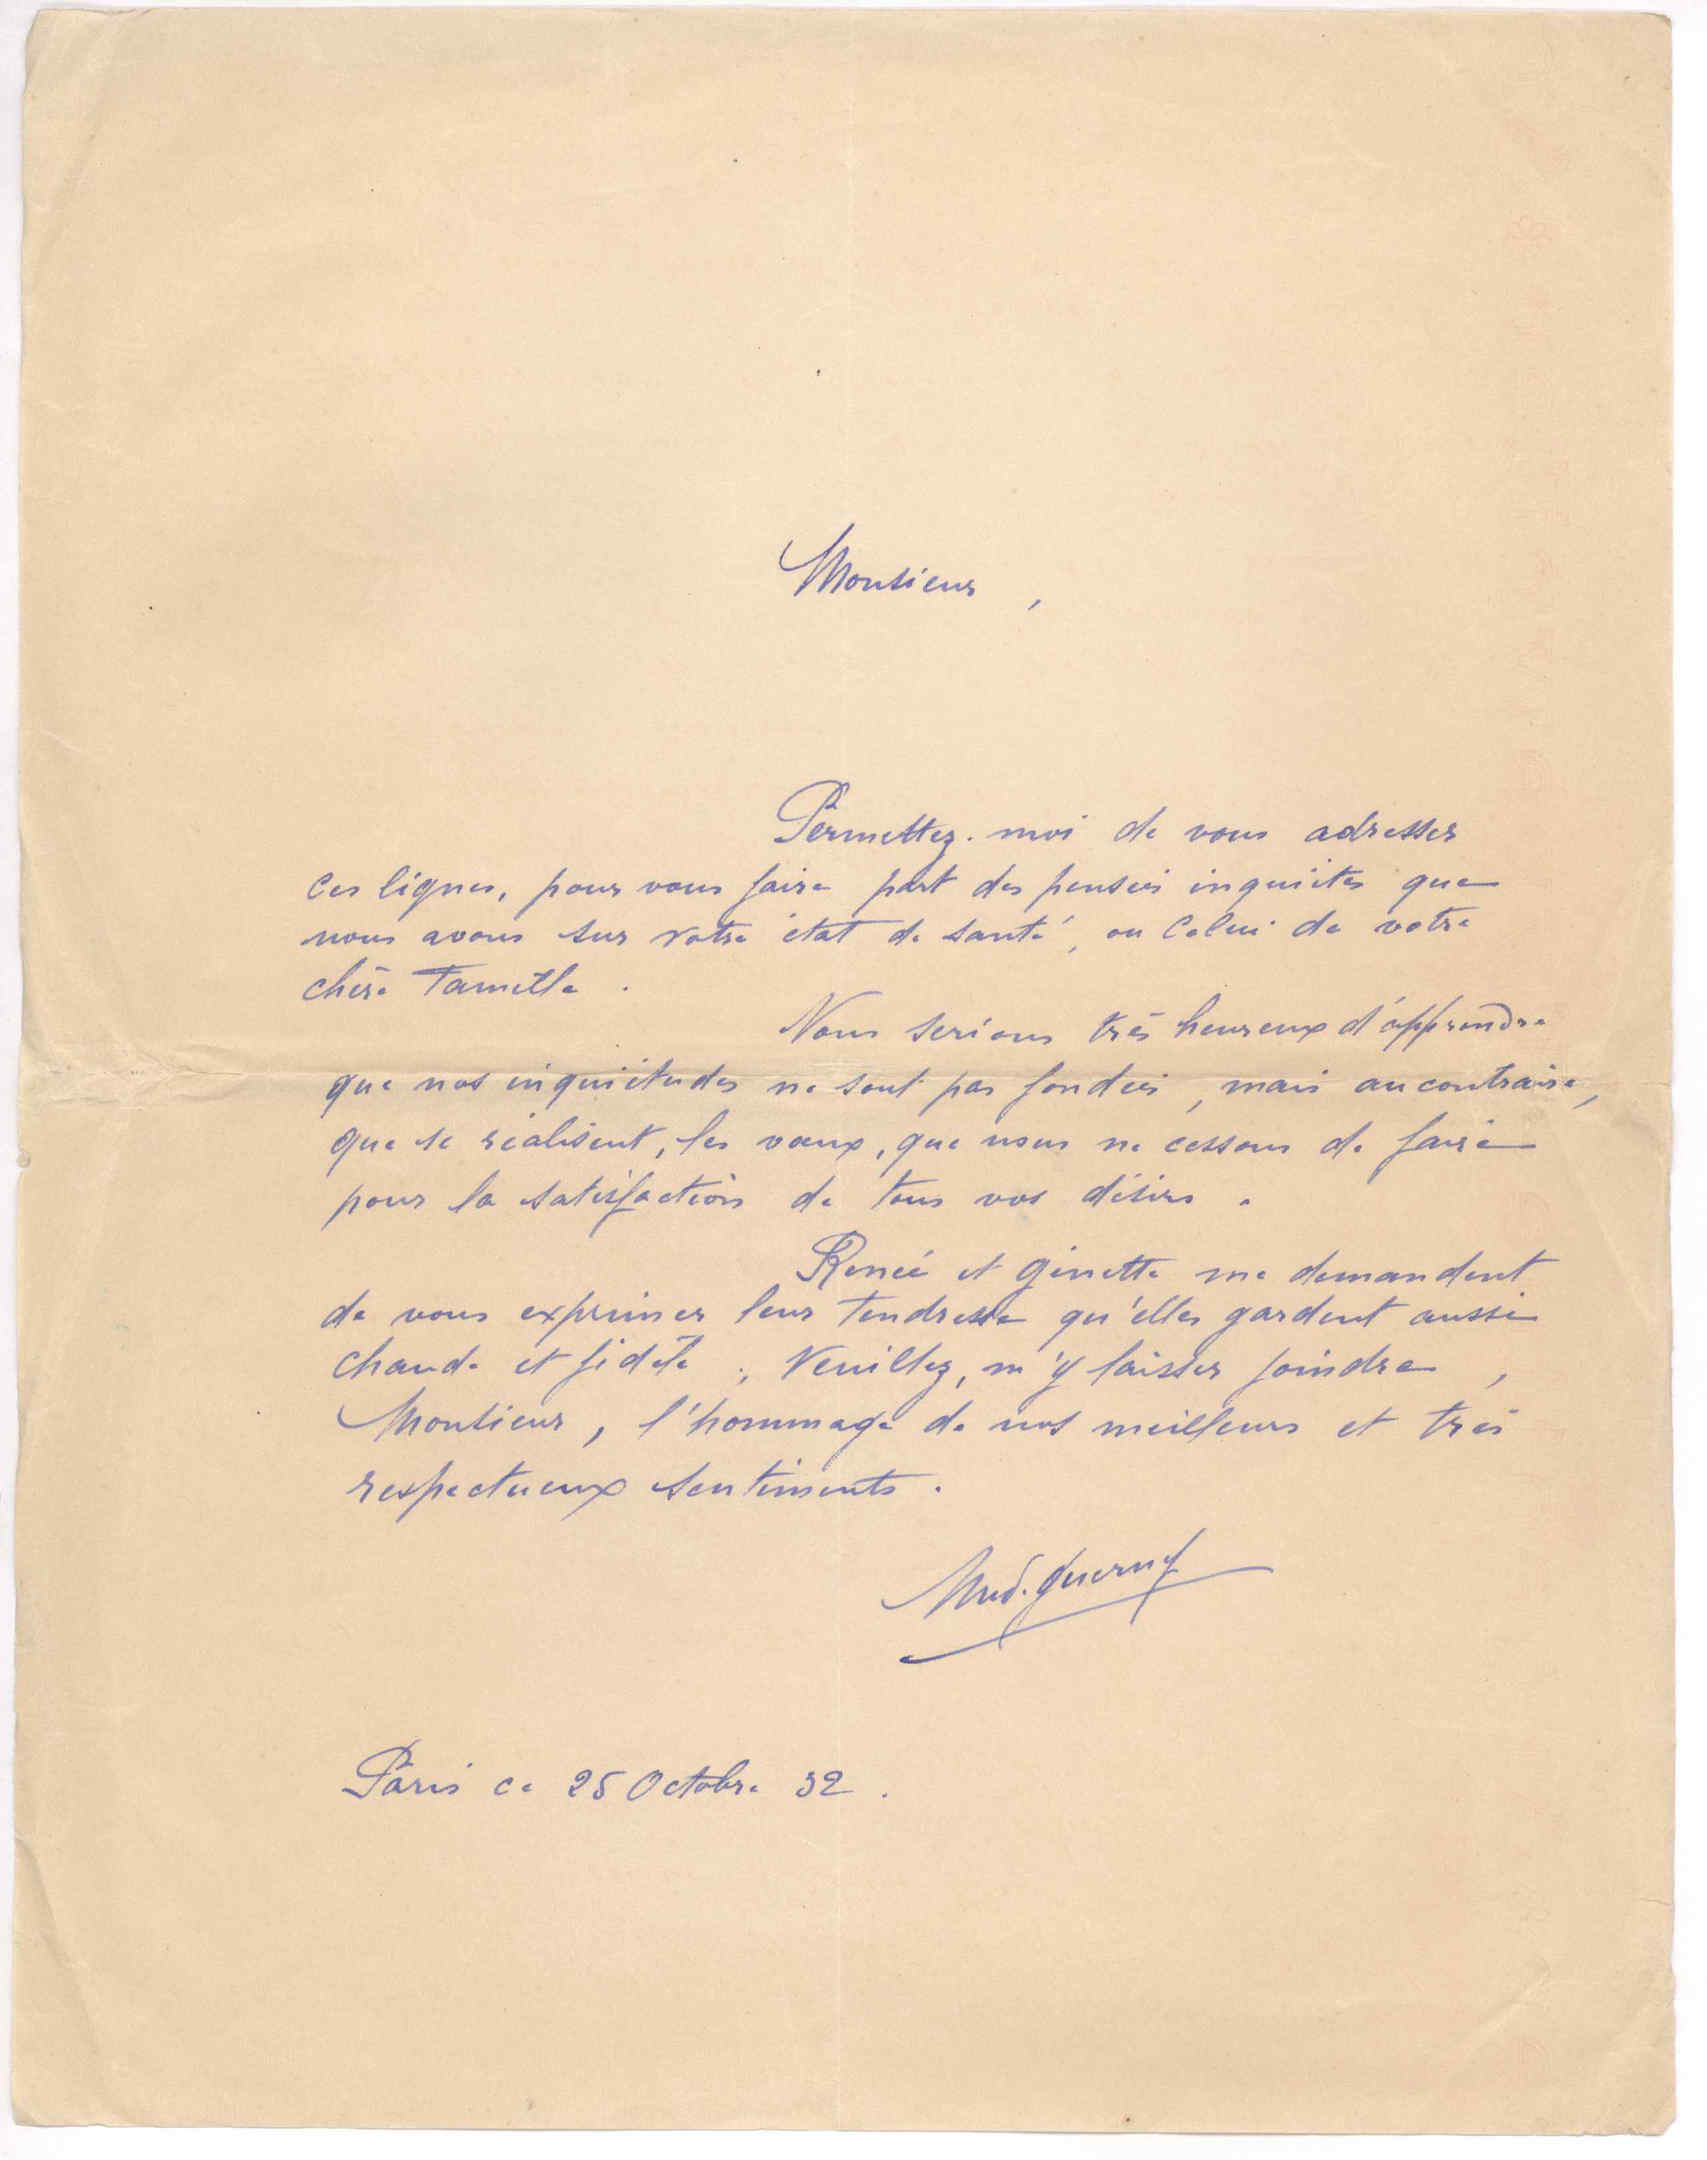 Monsieur ,
Permettez-moi de vous adresser
ces lignes, pour vous faire part des pensées inquiètes que
nous avons sur votre état de santé, ou celui de votre
chère Famille .
Nous serions très heureux d'apprendre
que nos inquiétudes ne sont pas fondées, mais au contraire,
que se réalisent, les vœux, que nous ne cessons de faire
pour la satisfaction de tous vos désirs .
Renée et Ginette me demandent
de vous exprimer leur tendresse qu'elles gardent aussi
chaude et fidèle ; Veuillez, m'y laisser joindre ,
Monsieur, l'hommage de nos meilleurs et très
respectueux sentiments .
Paris ce 25 Octobre 32 .